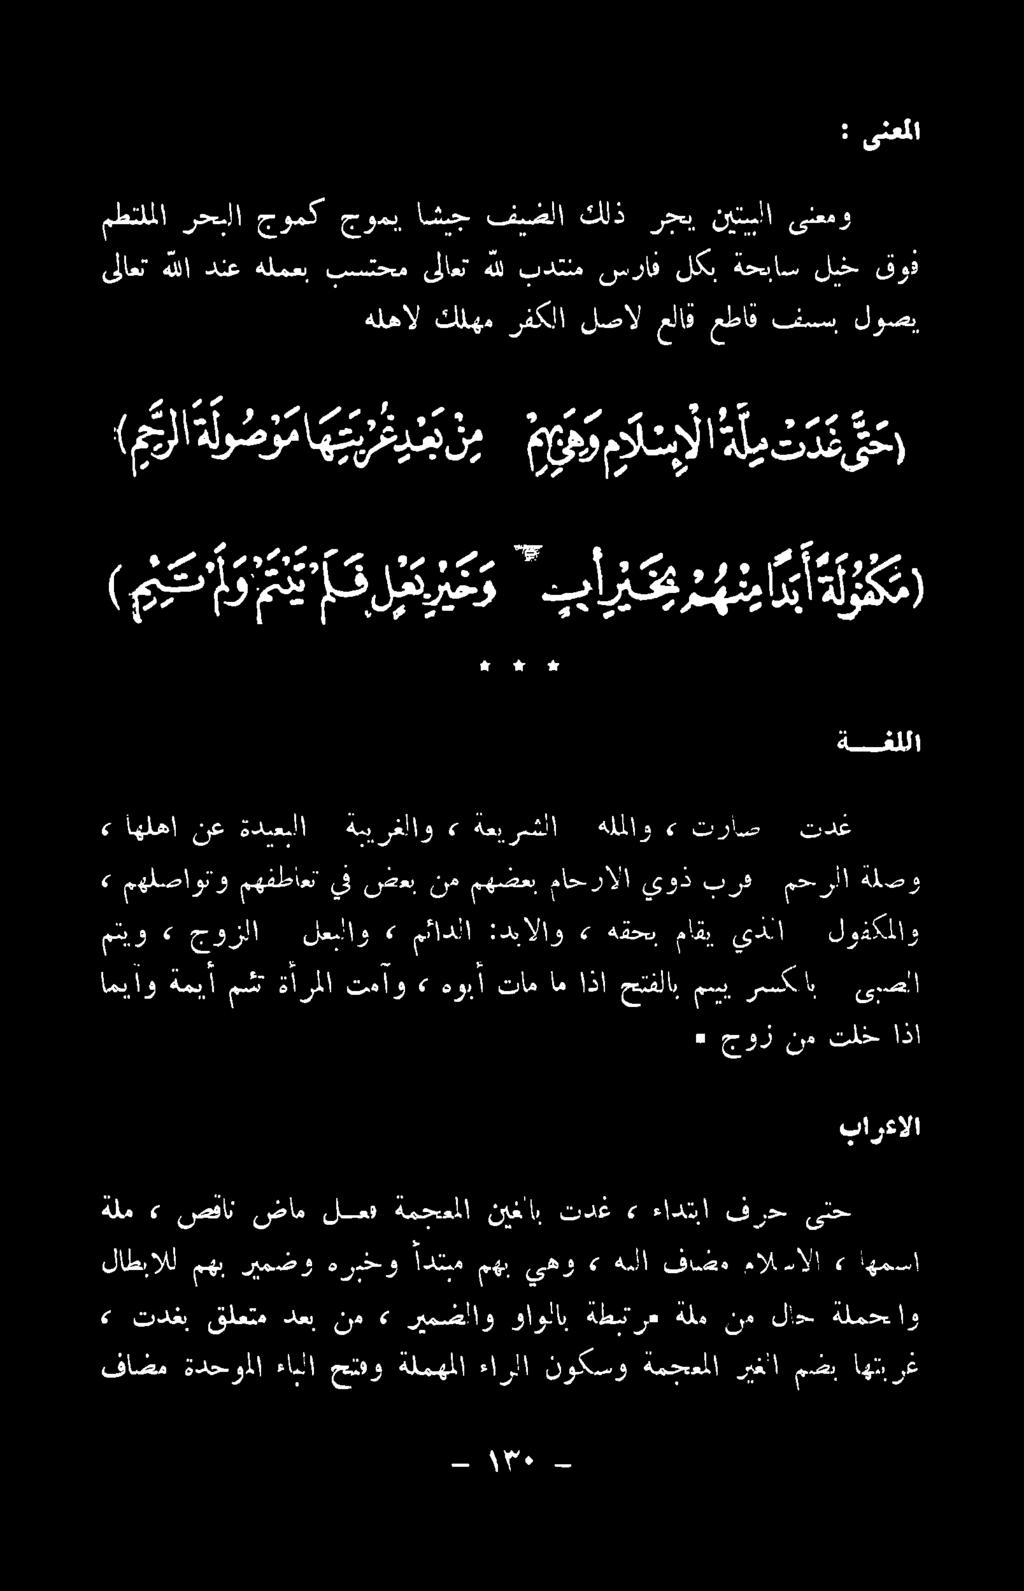 المعنى :
ومعنى البيتين يجر ذلك الضيف جيشا يموج كموج البحر الملتطم
فوق خيل سابحة بكل فارس منتدب لله تعالى محتسب بعمله عند الله تعالى
يصول بسف قاطع قالع لاصل الكفر مهلك لاهله
(حَتَّى غَدَتْ مِلَّةُ الْإِسْلَامِ وَهْيَ بِهِمْ مِنْ بَعْدِ غُرْبَتِهَا مَوْصُولَةَ الرَّحِمِ)
(مَكْفُولَةً أَبَدًا مِنْهُمْ بِخَيْرِ أَبٍ وَخَيْرِ بَعْلٍ فَلَمْ يَتِيتَمْ وَلَمْ تَئِمِ)
* * *
اللغــة
غدت صارت ، والمله الشريعة ، والغريبة البعيدة عن اهلها ،
وصلة الرحم قرب ذوي الارحام بعضهم من بعض في تعاطفهم وتواصلهم ،
والمكفول الذي يقام بحقه ، والابد: الدائم ، والبعل الزوج ، ويتم
الصبى بالكسر ييم بالفتح اذا ما مات أبوه ، وآمت المرأة تئم أيمة وآيما
اذا خلت من زوج .
الاعراب
حتى حرف ابتداء ، غدت بالغين المعجمة فعل ماض ناقص ، ملة
اسمها ، الاسلام مضاف اليه ، وهي بهم مبتدأ وخبره وضمير بهم للابطال
والجملة حال من ملة مرتبطة بالواو والضمير ، من بعد متعلق بغدت ،
غربتها بضم الغير المعجمة وسكون الراء المهملة وفتح الباء الموحدة مضاف
- ١٣٠ -